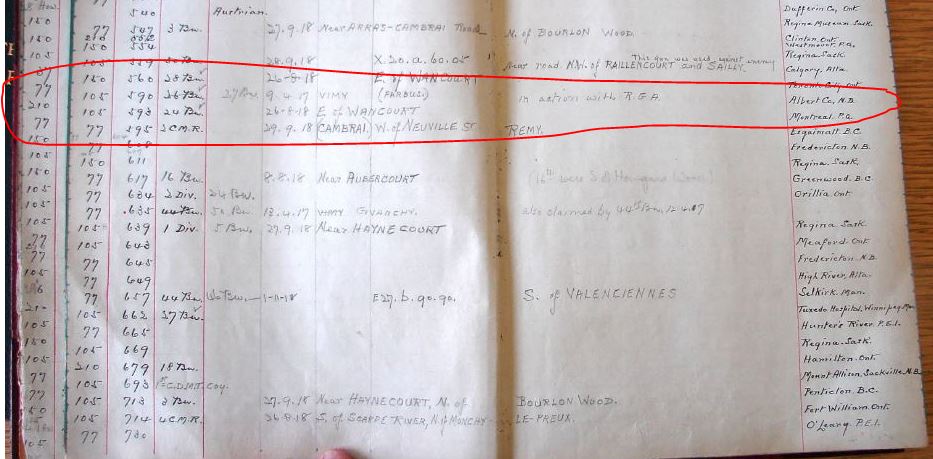 540 Austrian. Dufferin Co, Ont
150 77 547 3 Bn. 27.9.18 Near ARRAS-CAMBRAI Road N. of BOURLON WOOD. Regina Museum. Sask.
150 Clinton. Ont.
150 554 Westmount. P.Q.
105 559 28.9.18 X.20.a.60.05 near road N.W. of RAILLENCOURT and SAILLY. This gun was used against enemy Regina. Sask
150 560 28 Bn. 26-8-18 E. of WANCOURT Calgary, Alta
77 105 590 26 Bn. 27 Bn. 9.4.17 VIMY (FARBUS) in action with R.G.A. Toronto City, Ont
210 105 593 24 Bn. 26-8-18 E of WANCOURT Albert Co, N.B
77 77 595 2 C.M.R. 29.9.18 CAMBRAI, W. of NEUVILLE ST REMY. Montreal. P.Q.
150 77 608 Esquimalt. B.C
105 Fredericton N.B.
150 611 Regina. Sask.
150 77 617 16 Bn. 8.8.18 Near AUBERCOURT Greenwood. B.C
105 77 634 2 Div. 24 Bn. Orillia Ont
105 77 .635 44 Bn. 50 Bn. 13.4.17 VIMY GIVENCHY. also claimed by 44th Bn. 12.4.17
105 105 639 1 Div. 5 Bn. 27.9.18 Near HAYNECOURT Regina Sask
77 105 643 Meaford. Ont
77 645 Fredericton. N.B.
77 77 649 High River, Alta.
77 657 44 Bn. 1-11-18 E29.b.90.90. S. of VALENCIENNES Selkirk. Man.
210 105 662 27 Bn. Tuxedo Hospital, Winnipeg Man
105 77 665 Hunter's River P.E.I.
77 105 669 Regina. Sask.
105 210 679 18 Bn. Hamilton. Ont.
77 105 693 1st C.D.M.T. Coy. Mount Allison, Sackville N.B
77 105 713 3 Bn. 27-9.18 Near HAYNECOURT, N. of BOURLON WOOD. Penticton. B.C.
105 714 4 C.M.R. 26.8.18 S. of SCARPE RIVER, N. of MONCHY-LE-PREUX. Fort William. Ont.
105 77 730 O'Leary. P.E.I.